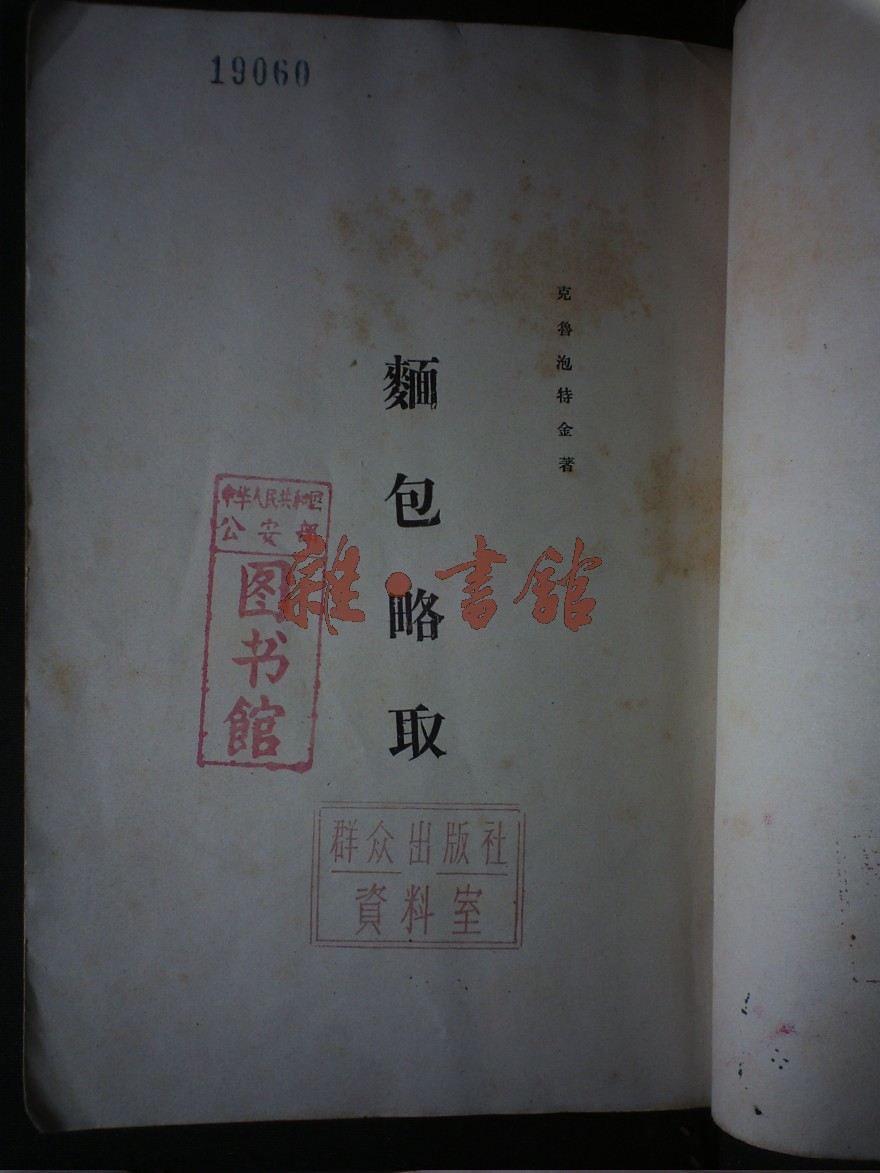 19060
克魯泡特金著
麵包略取
中华人民共和国
公安部
图书館
雜·書館
群众出版社
資料室